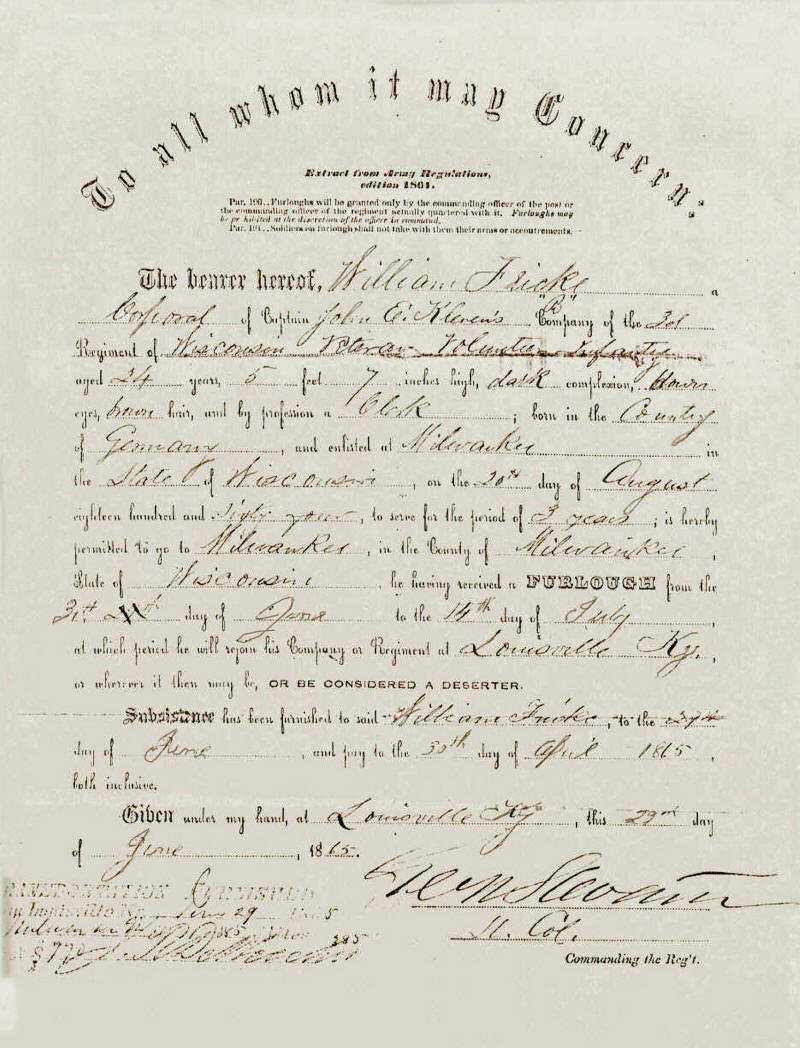 To all whom it may Concern:
Extract from Army Regulations,
edition 1861.
Par. 190.. Furloughs will be granted only by the commending officer of the post or
the commanding officer of the regiment actually quartered with it. Furloughs may
be prohibited at the discretion of the officer in command.
Par. 191.. Soldiers on furlough shall not take with them their arms or accoutrements.
The bearer hereof, William Fricke a
Corporal of Captain John E. Kleven's "B" Company of the 3d
Regiment of Wisconsin Veteran Volunteer Infantry
aged 24 years, 5 feet 7 inches high, dark complexion, brown
eyes, brown hair, and by profession a Clerk ; born in the Country
of Germany , and enlisted at Milwaukee in
the State of Wisconsin , on the 20th day of August
eighteen hundred and sixty four , to serve for the period of 3 years ; is hereby
permitted to go to Milwaukee , in the County of Milwaukee ,
State of Wisconsin , he having received a FURLOUGH from the
day of June to the 14th day of July ,
at which period he will rejoin his Company or Regiment at Louisville Ky.,
or wherever it then may be, OR BE CONSIDERED A DESERTER.
Subsistence has been furnished to said William Fricke, to the
day of June , and pay to the 30th day of April 1865 ,
both inclusive.
Given under my hand, at Louisville Ky , this 29th day
of June , 1865.
Lt. Col.
June 29
Commanding the Reg't.